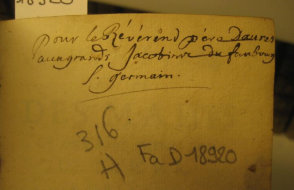 18920
Pour le Révérénd pére Dauros
aux grands Jacobins du fanbourg
S. germain.
316
H
Fa D 18920